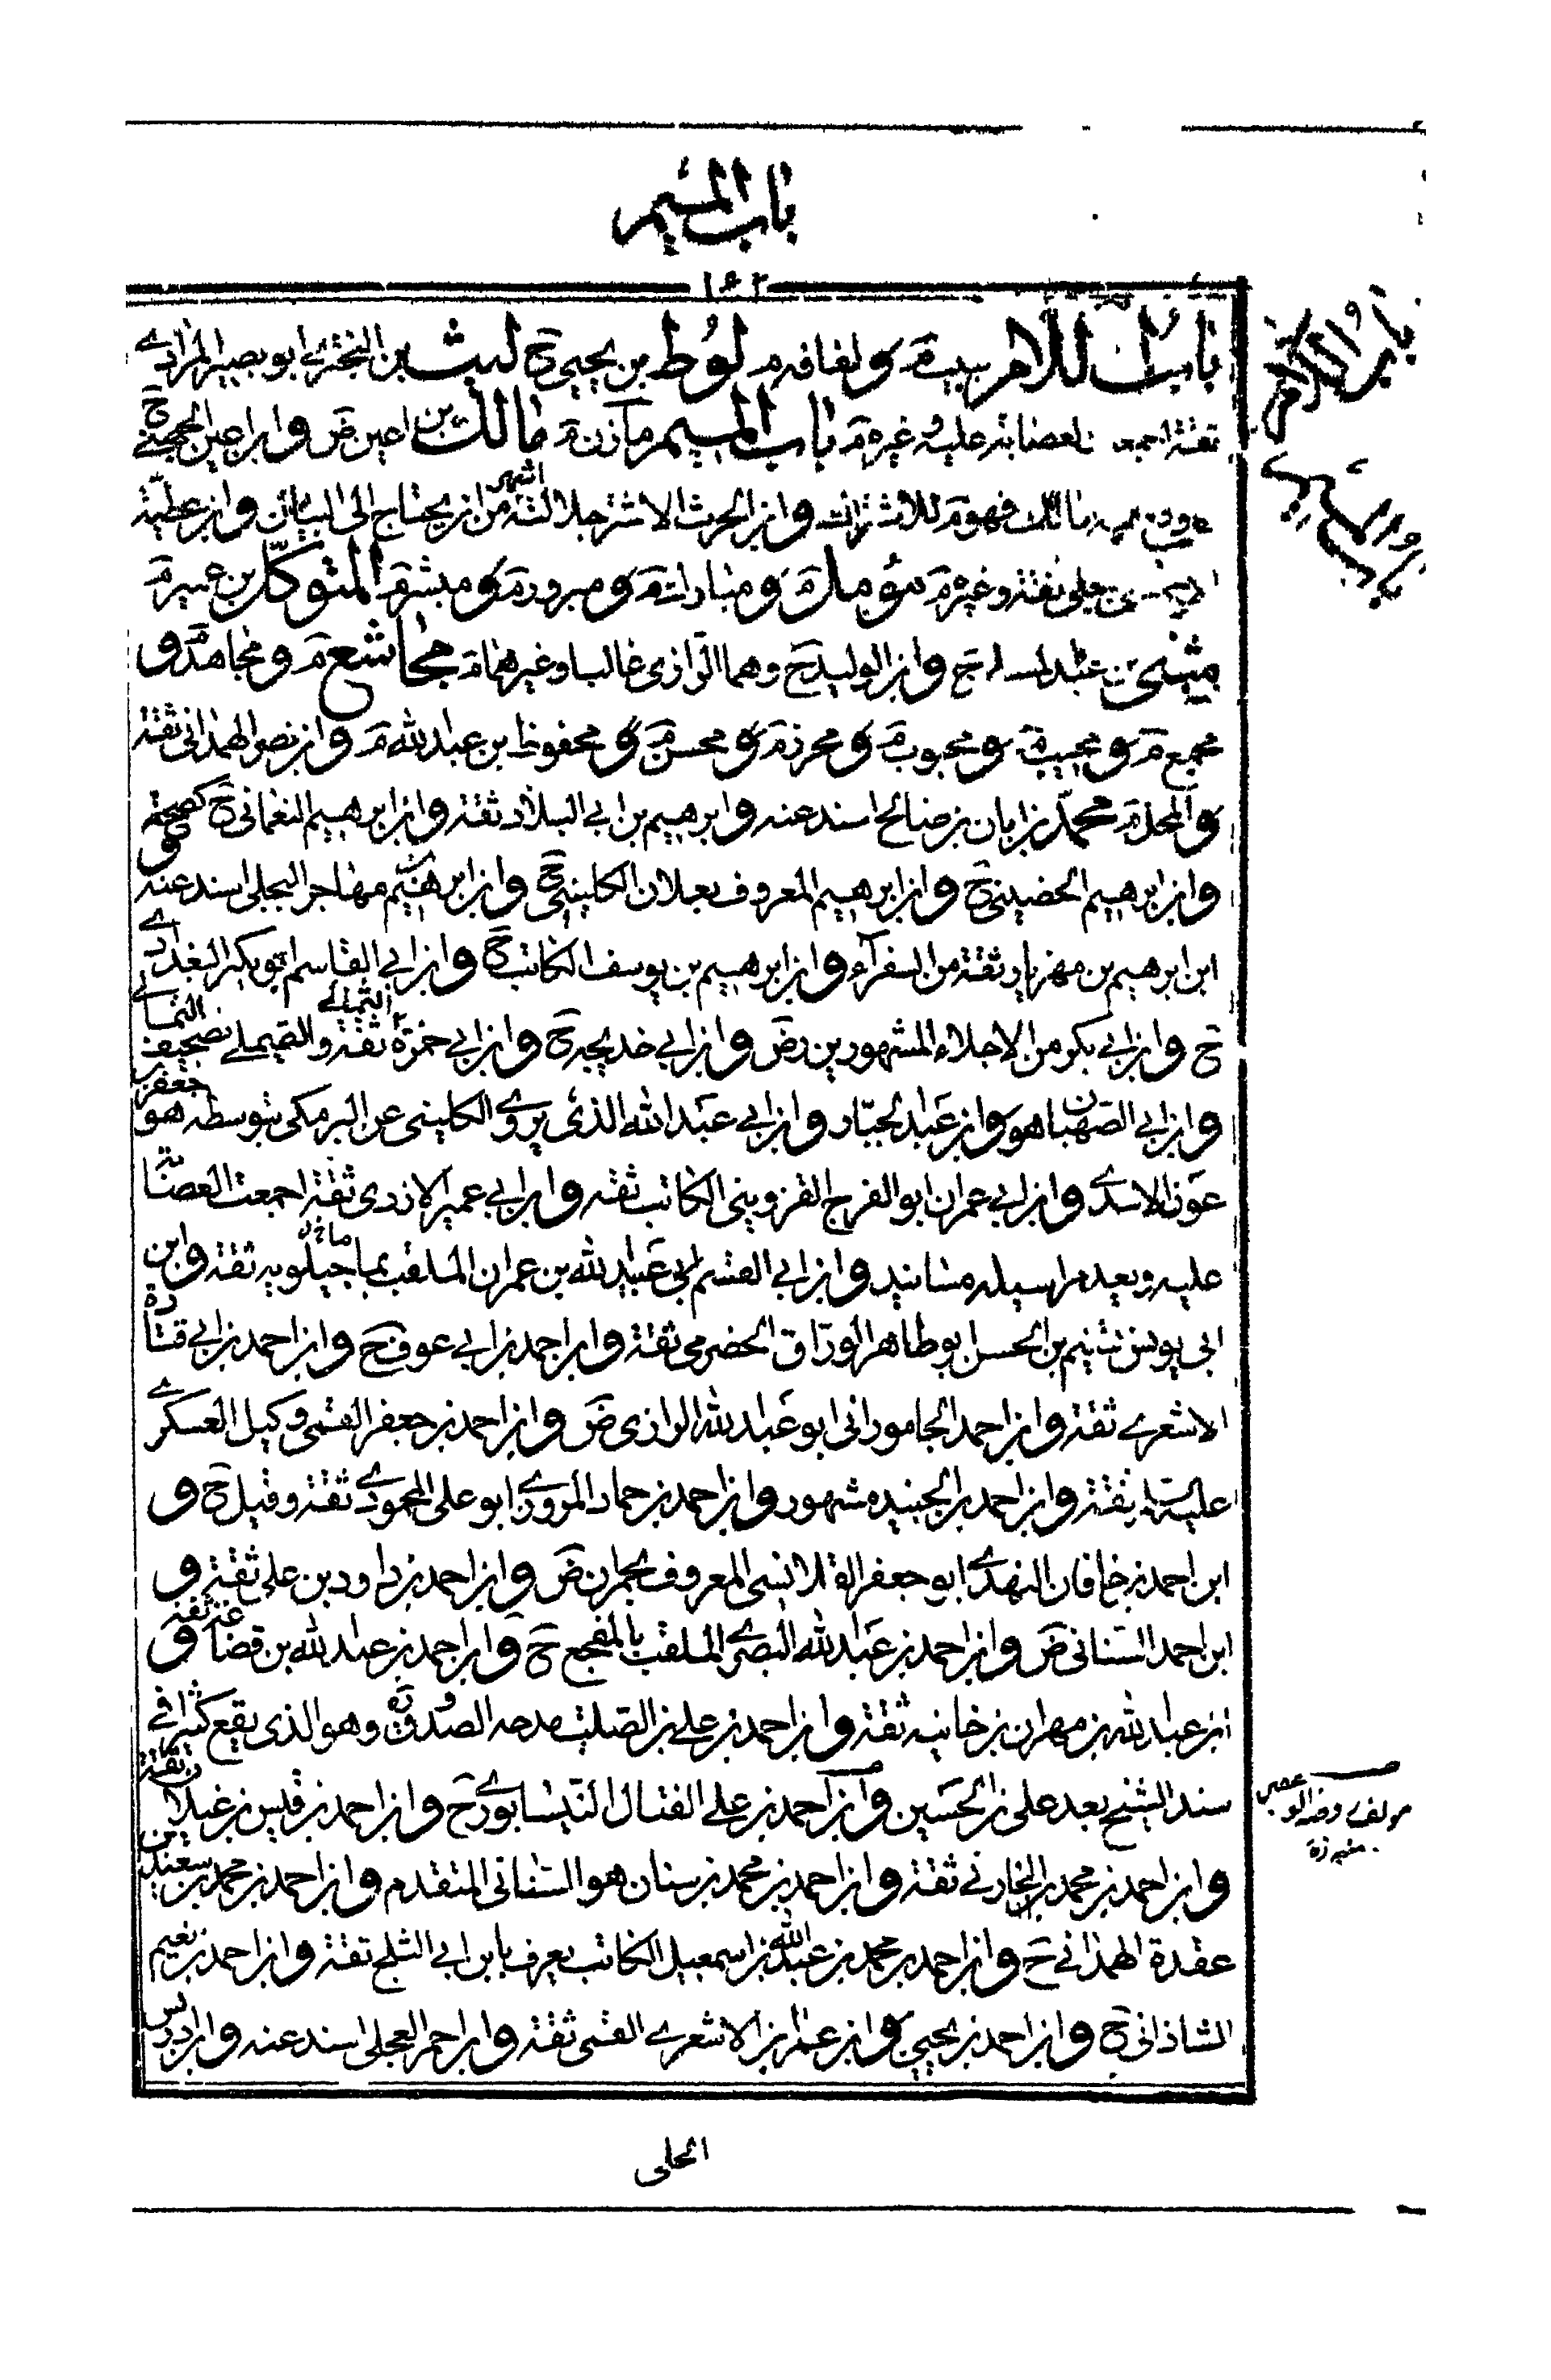 باب الميم
١٩٢
باب اللام لبيبة م ولفافة م لوط بن يحيى ح ليث بن البختري ابو بصير المرادي
ثقة اجمعت العصابة عليه وغيره م باب الميم مازن م مالك بن اعين ض وابن اعين الجهني ح
مالك فهو م للاشتراك وابن الحرث الاشتر جلالته اشهر من ان يحتاج الى البيان وابن عطية
ثقة وغيره م مؤمل م ومبارك م ومبرور م ومبشر م المتوكل بن عمير م
مثنى بن عبد السلام ح وابن الوليد ح وهما الراوي غالبا وغيرهما م مجاشع م ومجاهد م و
مجمع م ومجيب م ومحبوب م ومحرز م ومحسن م ومحفوظ بن عبدالله م وابن نصر الهمداني ثقة
والمحل م محمد بن ابان بن صالح اسند عنه وابرهيم بن ابي البلاد ثقة وابن ابرهيم النعماني ح كصحيحه
وابن ابرهيم الحضيني ح وابن ابرهيم المعروف بعلان الكليني ح وابن ابرهيم بن مهاجر البجلي اسند عنه
ابن ابرهيم بن مهزيار ثقة من السفراء وابن ابرهيم بن يوسف الكاتب ح وابن ابي القاسم ابو بكر البغدادي
ح وابن ابي بكر من الاجلاء المشهورين رض وابن ابي خديجة ح وابن ابي حمزة الثمالي ثقة والصيملي تصحيف الثمالي
وابن ابي الصهبان هو وابن عبد الجبار وابن ابي عبدالله الذي يروي الكليني عن البرمكي بتوسطه هو جعفر بن
عون الاسدي وابن ابي عمران ابو الفرج القزويني الكاتب ثقة وابن ابي عمير الازدي ثقة اجمعت العصابة
عليه ويعد مراسيله مسانيد وابن ابي القسم ابي عبيد الله بن عمران الملقب بماجيلويه ثقة وابن
ابي يونس تسنيم بن الحسن ابو طاهر الوراق الحضرمي ثقة وابن احمد بن ابي عوف ح وابن احمد بن ابي قتادة
الاشعري ثقة وابن احمد الجاموراني ابو عبدالله الرازي ض وابن احمد بن جعفر القمي وكيل العسكري
عليه السلام ثقة وابن احمد بن الجنيد مشهور وابن احمد بن حماد المروزي ابو علي المحمودي ثقة وقيل ح و
ابن احمد بن خاقان النهدي ابو جعفر القلانسي المعروف بحمران ض وابن احمد بن داود بن علي ثقة و
ابن احمد السناني ض وابن احمد بن عبدالله البصري الملقب بالمفجع ح وابن احمد بن عبدالله بن قضاعة ثقة و
ابن عبدالله بن مهران بن خانبة ثقة وابن احمد بن علي بن الصلت مدحه الصدوق ره وهو الذي يقع كثيرا في
سند الشيخ بعد علي بن الحسين وابن احمد بن علي الفتال النيسابوري ح وابن احمد بن قيس بن غيلان ثقة
وابن احمد بن محمد بن الخارفي ثقة وابن احمد بن محمد بن سنان هو السناني المتقدم وابن احمد بن محمد بن سعيد بن
عقدة الهمداني ح وابن احمد بن محمد بن عبدالله بن اسمعيل الكاتب يعرف بابن ابي الثلج ثقة وابن احمد بن نعيم
الشاذاني ح وابن احمد بن يحيى وابن عمران الاشعري القمي ثقة وابن احمر العجلي اسند عنه وابن ادريس
الحلي
باب اللام
باب الميم
مولف روضة الواعظين
منه ره